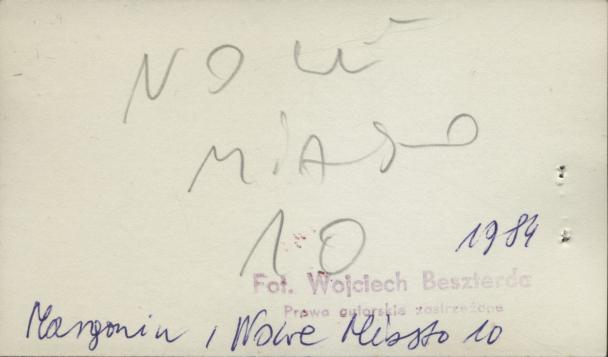 NOWE
MIASTO
10
1984
Fot. Wojciech Beszterda
Prawa autorskie zastrzeżone
Margonin, Nowe Miasto 10